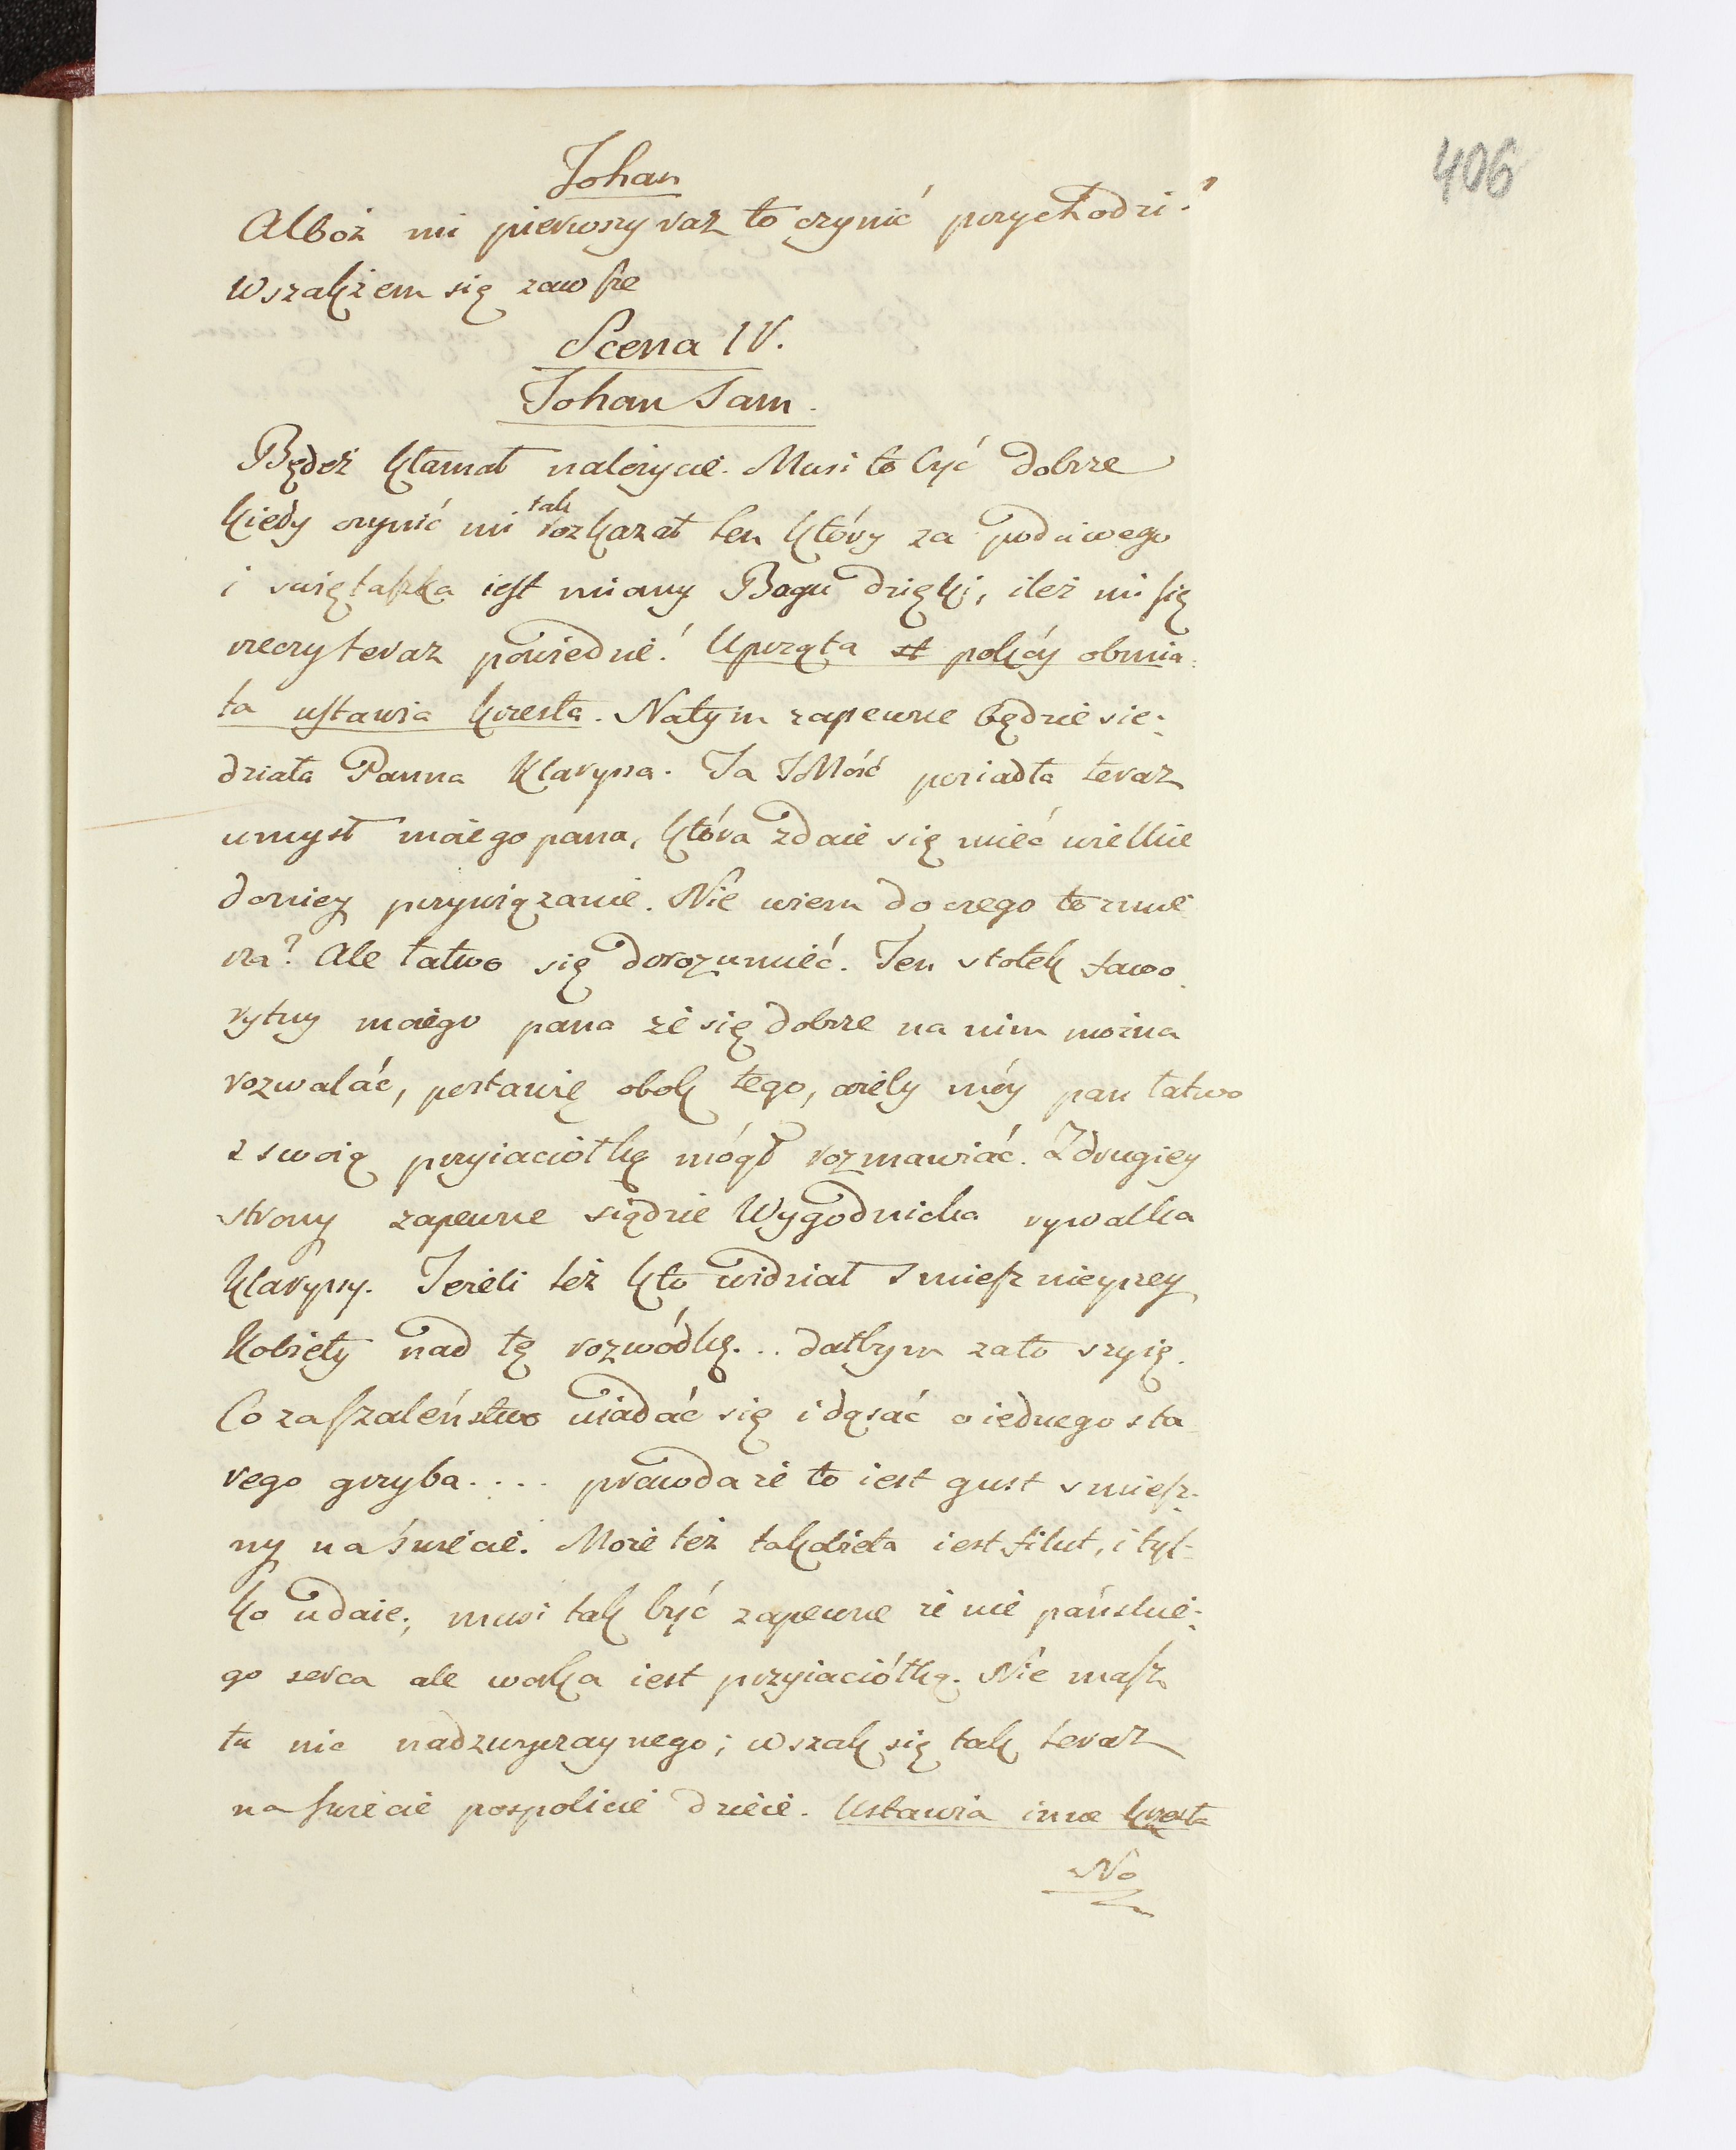 406
Johan
Alboż mi pierwszy raz to czynić przychodzi?
Wszakżem się zawsze
Scena IV.
Johan Sam.
Będeż kłamał należycie. Musi to być dobrze
kiedy czynić mi tak rozkazał ten który za poczciwego
i swiętaszka iest miany Bogu dzięki, ileż mi się
rzeczy teraz powiedzie! Uprząta st pokóy obmia:
ta ustawia krzesła. Natym zapewne będzie sie:
działa Panna Klaryssa. Ta JMość posiadła teraz
umysł moiego pana, która zdaie się mieć wielkie
doniey przywiązanie. Nie wiem do czego to zmie
rza? Ale łatwo się dorozumieć. Ten stołek fawo
rytny moiego pana że się dobrze na nim można
rozwalać, postawię obok tego, ażeby móy pan łatwo
z swoią przyiaciółką mógł rozmawiać. Z drugiey
strony zapewne siądzie Wygodnicka rywalka
Klaryssy. Jeżeli też kto widział smiesznieyszey
kobiéty nad tę rozwódkę... dałbym zato szyię.
Co za szaleństwo uiadać się i dąsać o iednego sta
rego grzyba.... prawda że to iest gust smiesz:
ny na świecie. Może też takdzieła iest filut, i tyl-
ko udaie, musi tak być zapewne że nie pańskie:
go serca ale worka iest przyiaciółką. Nie masz
tu nic nadzwyczaynego; wszak się tak teraz
na swiecie pospolicie dzieie. Ustawia inne krzesła
No